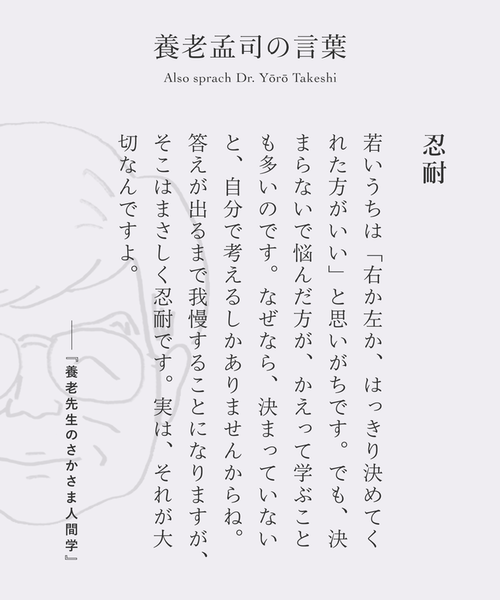 養老孟司の言葉
Also sprach Dr. Yōrō Takeshi
忍耐
若いうちは「右か左か、はっきり決めてく
れた方がいい」と思いがちです。でも、決
まらないで悩んだ方が、かえって学ぶこと
も多いのです。なぜなら、決まっていない
と、自分で考えるしかありませんからね。
答えが出るまで我慢することになりますが、
そこはまさしく忍耐です。実は、それが大
切なんですよ。
──『養老先生のさかさま人間学』